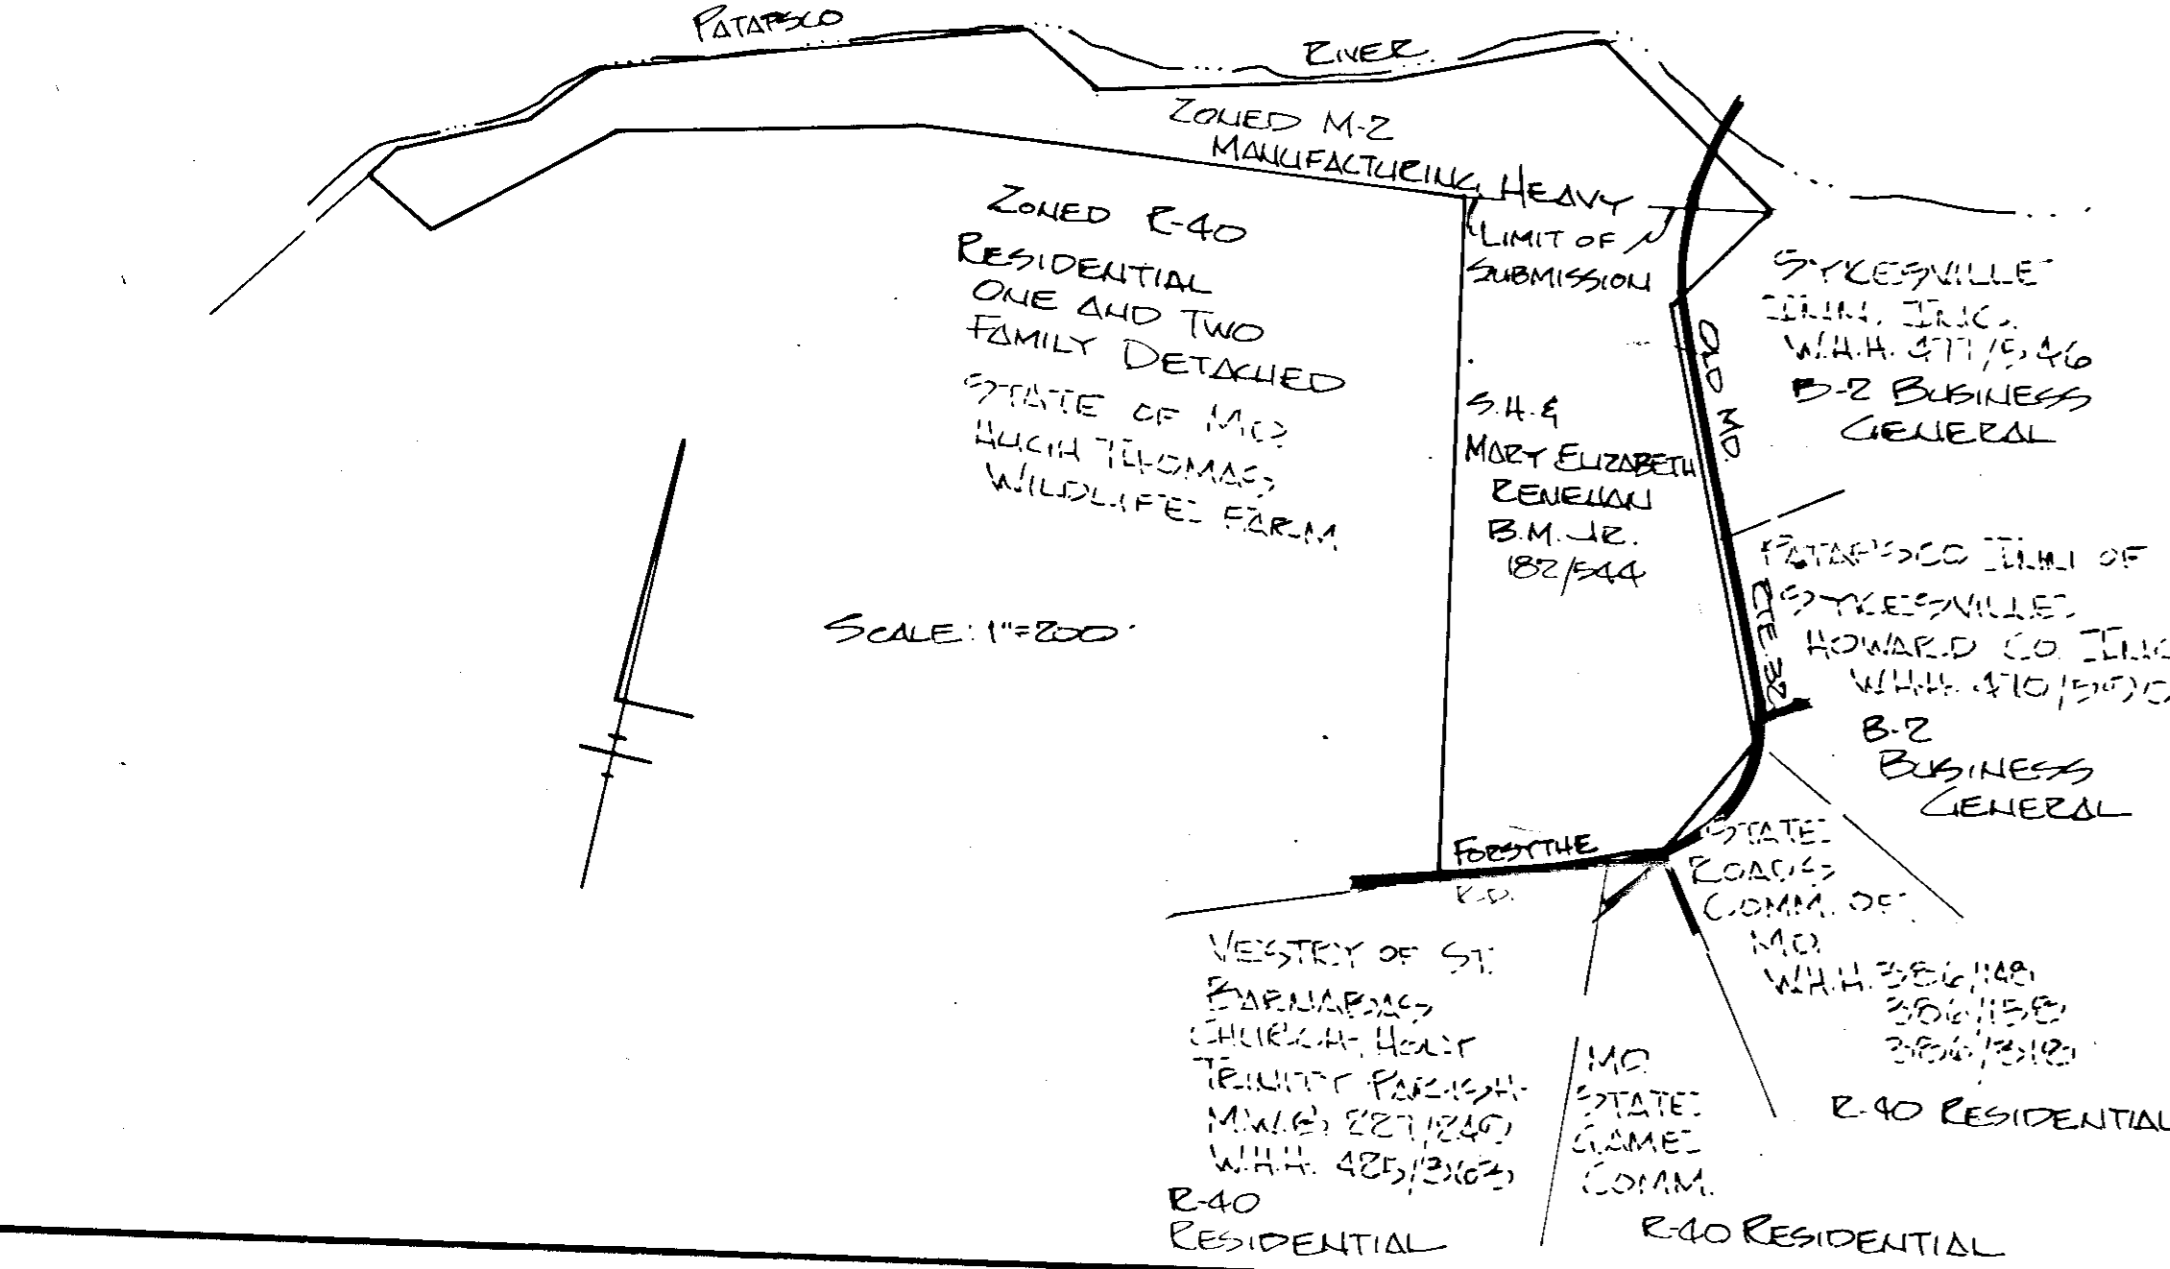 PATAPSCO
RIVER
ZONED M-2
MANUFACTURING, HEAVY
ZONED R-40
RESIDENTIAL
ONE AND TWO
FAMILY DETACHED
STATE OF MD.
HUGH THOMAS
WILDLIFE FARM
LIMIT OF
SUBMISSION
S.H. &
MARY ELIZABETH
RENEHAN
B.M. JR.
182/544
OLD MD.
RTE. 32
SYKESVILLE
INN, INC.
W.H.H. 477/546
B-2 BUSINESS
GENERAL
PATAPSCO INN OF
SYKESVILLE
HOWARD CO. INC
W.H.H. 470/
B-2
BUSINESS
GENERAL
SCALE: 1"=200'
FORSYTHE
RD.
STATE
ROADS
COMM. OF
MD.
W.H.H. 386/148
386/158
386/318
R-40 RESIDENTIAL
VESTRY OF ST.
BARNABAS
CHURCH, HOLY
TRINITY PARISH
M.W.B. 227/240
W.H.H. 425/363
R-40
RESIDENTIAL
MD.
STATE
GAME
COMM.
R-40 RESIDENTIAL